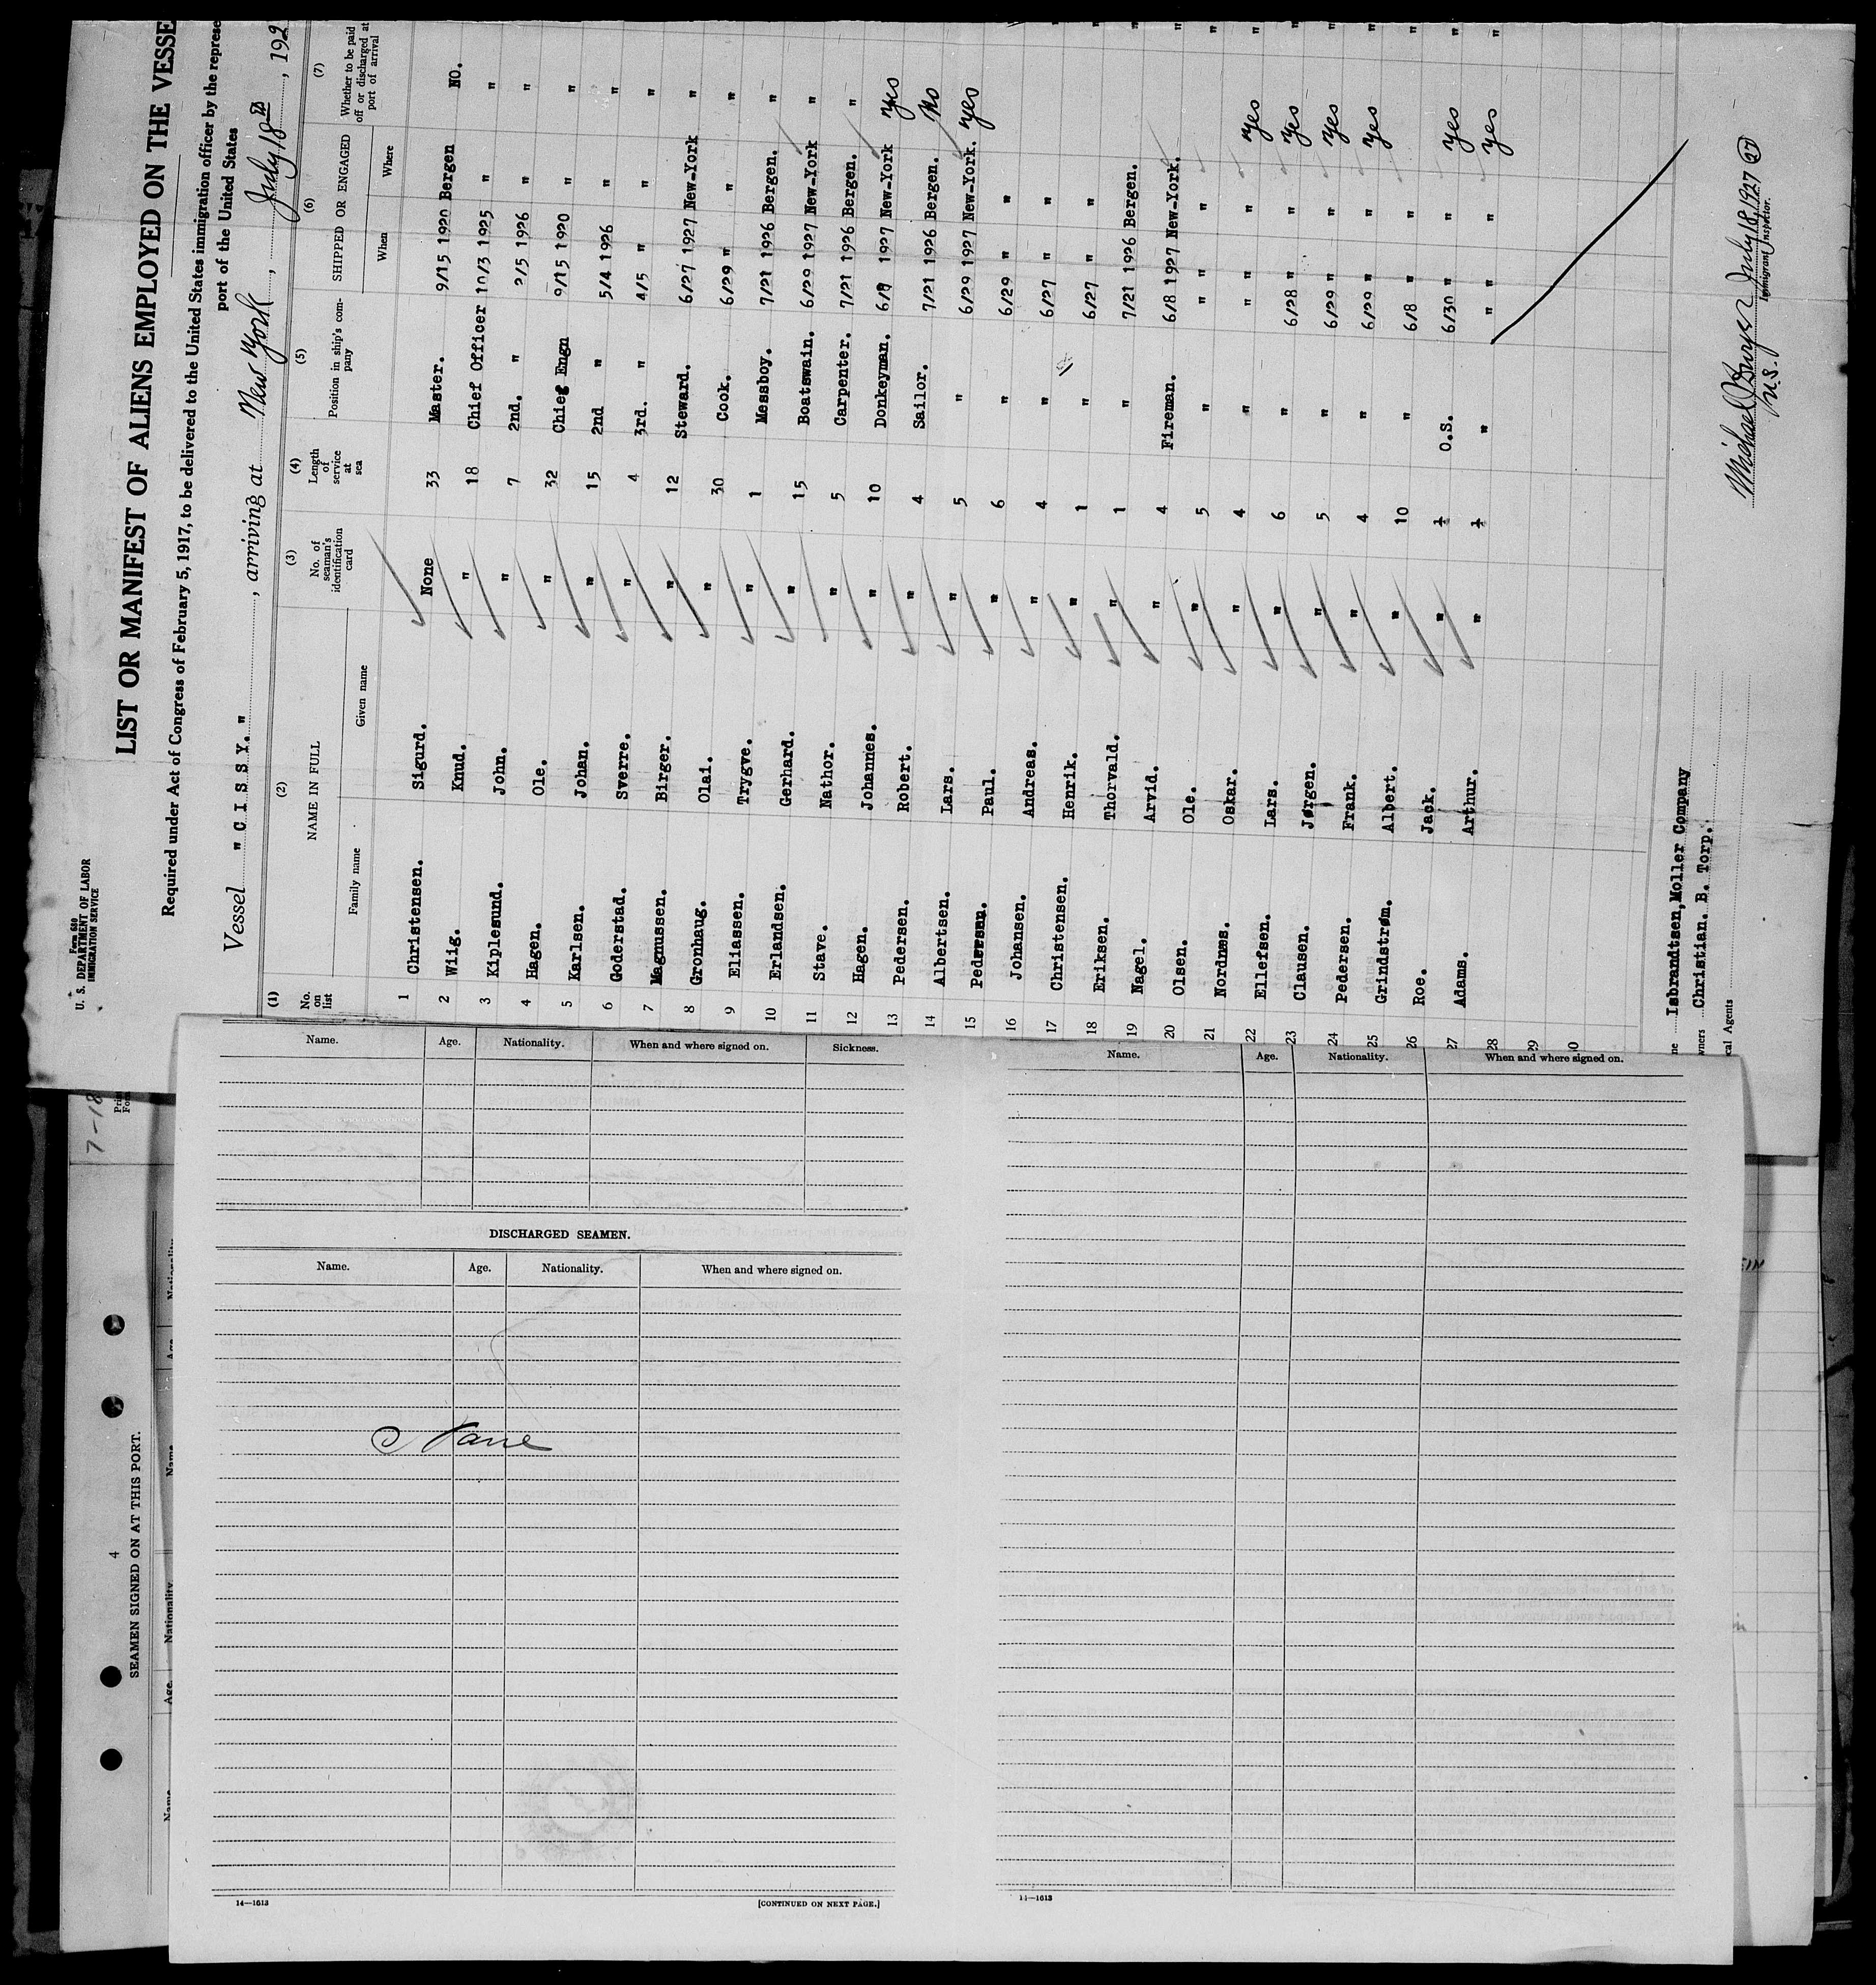 Form 680
U. S. DEPARTMENT OF LABOR
IMMIGRATION SERVICE
LIST OR MANIFEST OF ALIENS EMPLOYED ON THE VESSE
Required under Act of Congress of February 5, 1917, to be delivered to the United States immigration officer by the represe
port of the United States
Vessel " C I S S Y. " , arriving at New York , July 18th , 192
(1) (2) (3) (4) (5) (6) (7)
No. on list NAME IN FULL No. of seaman's identification card Length of service at sea Position in ship's company SHIPPED OR ENGAGED Whether to be paid off or discharged at port of arrival
Family name Given name When Where
1 Christensen. Sigurd. None 33 Master. 9/15 1920 Bergen NO.
2 Wiig. Knud. " 18 Chief Officer 10/3 1925 " "
3 Kiplesund. John. " 7 2nd. " 2/5 1926 " "
4 Hagen. Ole. " 32 Chieg Engn 9/15 1920 " "
5 Karlsen. Johan. " 15 2nd " 5/4 1926 " "
6 Goderstad. Sverre. " 4 3rd. " 4/5 " " "
7 Magnussen. Birger. " 12 Steward. 6/27 1927 New-York "
8 Gronhaug. Olai. " 30 Cook. 6/29 " " "
9 Eliassen. Trygve. " 1 Messboy. 7/21 1926 Bergen. "
10 Erlandsen. Gerhard. " 15 Boatswain. 6/29 1927 New-York "
11 Stave. Nathor. " 5 Carpenter. 7/21 1926 Bergen. "
12 Hagen. Johannes. " 10 Donkeyman. 6/8 1927 New-York yes
13 Pedersen. Robert. " 4 Sailor. 7/21 1926 Bergen. No
14 Albertsen. Lars. " 5 " 6/29 1927 New-York. yes
15 Pedersen. Paul. " 6 " 6/29 " "
16 Johansen. Andreas. " 4 " 6/27 " "
17 Christensen. Henrik. " 1 " 6/27 " "
18 Eriksen. Thorvald. " 1 " 7/21 1926 Bergen.
19 Nagel. Arvid. " 4 Fireman. 6/8 1927 New-York.
20 Olsen. Ole. " 5 " " " "
21 Nordnæs. Oskar. " 4 " " " " yes
22 Ellefsen. Lars. " 6 " 6/28 " " yes
23 Clausen. Jørgen. " 5 " 6/29 " " yes
24 Pedersen. Frank. " 4 " 6/29 " " yes
25 Grindstrøm. Albert. " 10 " 6/8 " "
26 Roe. Jack. " O.S. 6/30 " " yes
27 Adams. Arthur. " " " " " yes
28
29
30
ne Isbrandtsen,Moller Company
wners Christian. B. Torp.
cal Agents
Michael J Dwyer July 18, 1927 (27)
Immigrant Inspector.
U.S.
7-18
Name. Age. Nationality. When and where signed on. Sickness.
DISCHARGED SEAMEN.
Name. Age. Nationality. When and where signed on.
None
14—1613 [CONTINUED ON NEXT PAGE.]
Name. Age. Nationality. When and where signed on.
14—1613
4
SEAMEN SIGNED ON AT THIS PORT.
Name Age. Nationality. Name Age Nationality